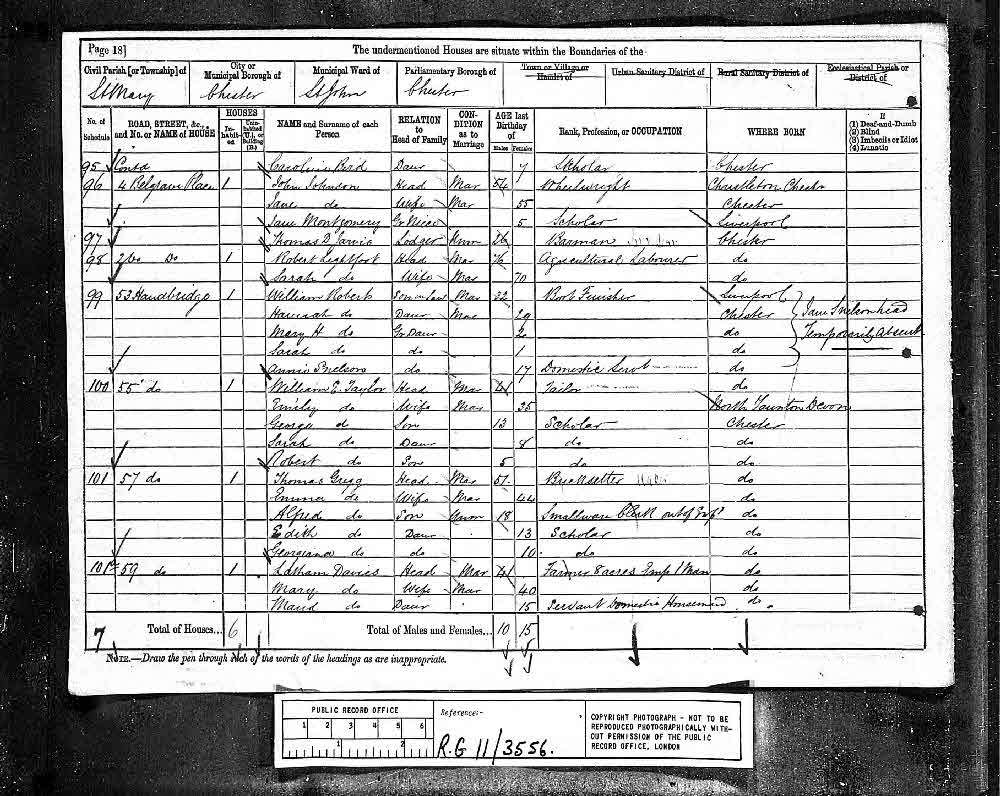 Page 18] The undermentioned Houses are situate within the Boundaries of the
Civil Parish [or Township] of City or Municipal Borough of Municipal Ward of Parliamentary Borough of Town or Village or Hamlet of Urban Sanitary District of Rural Sanitary District of Ecclesiastical Parish or District of
St Mary Chester St John Chester
No. of Schedule ROAD, STREET, &c., and No. or NAME of HOUSE HOUSES Inhabited Uninhabited (U.), or Building (B.) NAME and Surname of each Person RELATION to Head of Family CONDITION as to Marriage AGE last Birthday of Males Females Rank, Profession, or OCCUPATION WHERE BORN If (1) Deaf-and-Dumb (2) Blind (3) Imbecile or Idiot (4) Lunatic
95 Contd Caroline Daur 7 Scholar Chester
96 4 Belgrave Place 1 John Johnson Head Mar 54 Wheelwright Christleton Chester
Jane do Wife Mar 55 Chester
Jane Montgomery Gr Niece 5 Scholar Liverpool
97 Thomas D Jarvis Lodger Unm 26 Barman Chester
98 2 Do Do 1 Robert Lightfoot Head Mar Agricultural Labourer do
Sarah do Wife Mar 70 do
99 53 Handbridge 1 William Robert Son in law Mar 32 Finisher Liverpool
Hannah do Daur Mar 29 Chester Jane Snelson head
Mary H do Gr Daur 2 do Temporarily Absent
Sarah do do 1 do
Annie Snelson do 17 Domestic Servt do
100 55 do 1 William E Taylor Head Mar 41 Tailor do
Emily do Wife Mar 35 North Taunton Devon
George do Son 13 Scholar Chester
Sarah do Daur 8 do do
Robert do Son 5 do do
101 57 do 1 Thomas Gregg Head Mar 51 Bricksetter do
Emma do Wife Mar 44 do
Alfred do Son Unm 18 Smallware Clerk out of Empt do
Edith do Daur 13 Scholar do
Georgiana do do 10 do do
101a 59 do 1 Latham Davies Head Mar 41 Farmer 8 acres Emp 1 Man do
Mary do Wife Mar 40 do
Maud do Daur 15 Servant Domestic Housemaid do
7 Total of Houses... 6 Total of Males and Females... 10 15
NOTE.—Draw the pen through such of the words of the headings as are inappropriate.
PUBLIC RECORD OFFICE
1 2 3 4 5 6
1 2
Reference:-
R.G 11/3556.
COPYRIGHT PHOTOGRAPH - NOT TO BE
REPRODUCED PHOTOGRAPHICALLY WITH-
OUT PERMISSION OF THE PUBLIC
RECORD OFFICE, LONDON